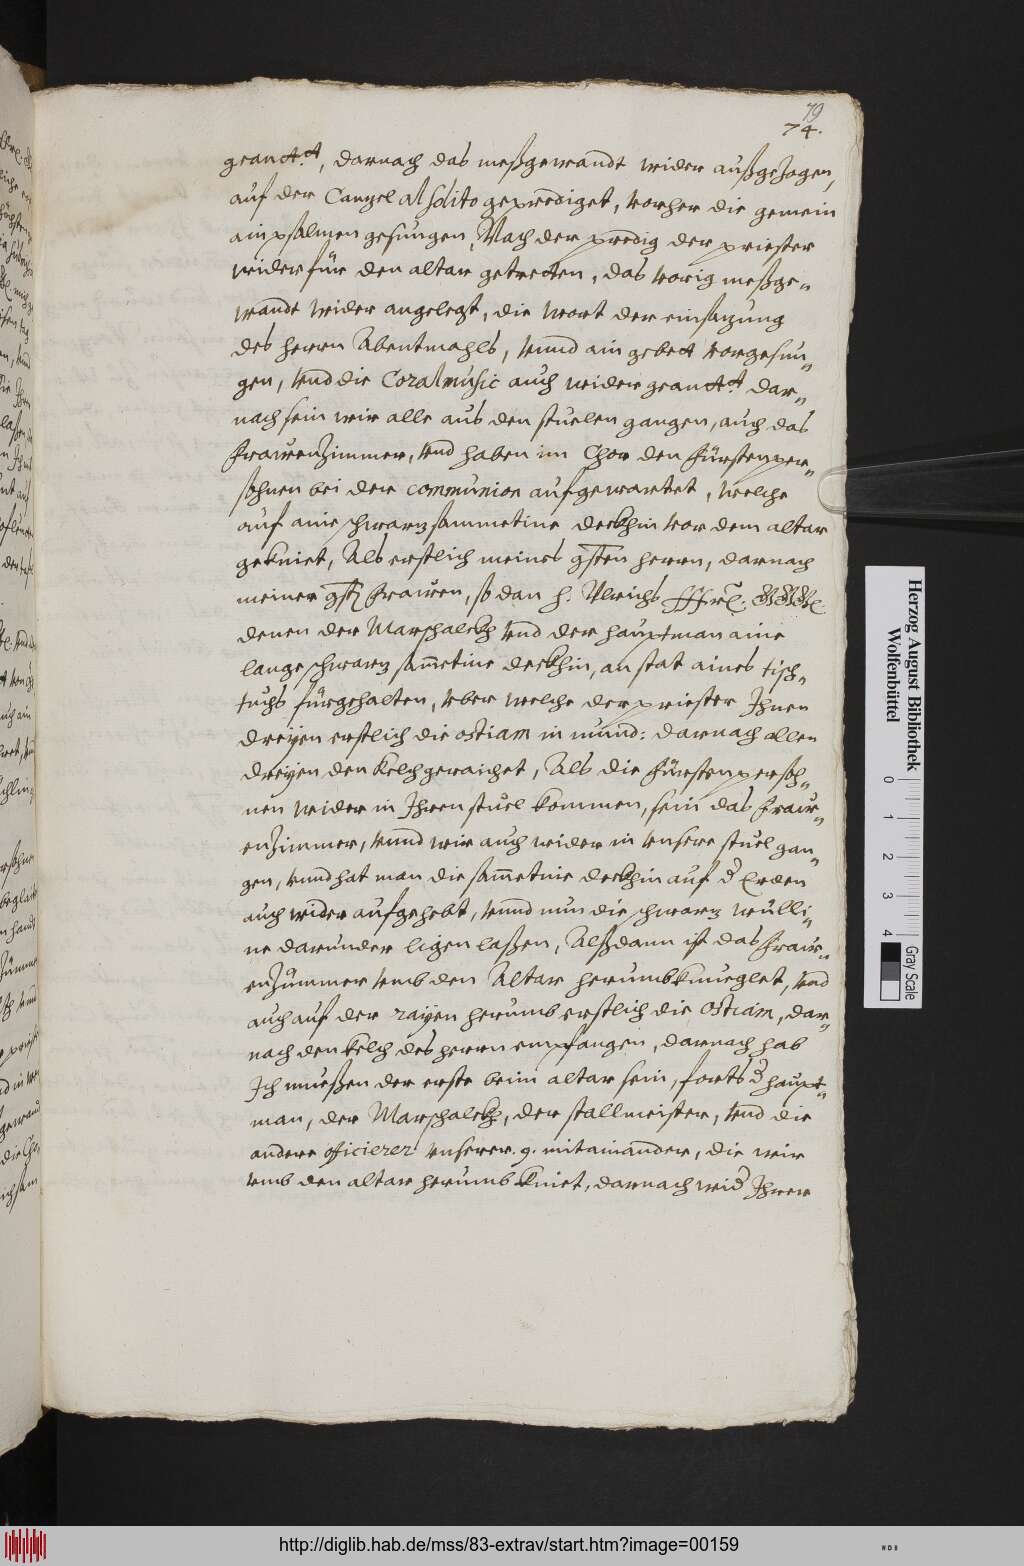 79
74.
geantt.t, darnach das meßgewandt wider außgezogen,
auf der Canzel al solito geprediget, vorher die gemein
ain psalmen gesungen, Nach der predig der priester
wider für den altar getretten, das vorig meßge„
wandt wider angelegt, die wort der einsazung
des herrn Abentmahls, vnnd ain gebett vorgesun„
gen, vnd die Coralmusic auch wider geantt.t dar„
nach sein wir alle aus den stuelen gangen, auch das
Frawenzimmer, vnd haben im Chor den Fürstenper„
sohnen bei der communion aufgewartet, welche
auf aine schwarz sammetine deckhin vor dem altar
gekniet, Als erstlich meines gsten herrn, darnach
meiner gst Frawen, so dan h. Ulrichs
denen der Marschalckh vnd der hauptman aine
lange schwarz sametine deckhin, an stat aines tisch„
tuchs fürgehalten, vber welche der priester Ihnen
dreyen erstlich die ostiam in mund: darnach allen
dreyen den kelch geraichet, Als die Fürstenpersoh„
nen wider in Ihren stuel kommen, sein das Fraw„
enzimmer, vnnd wir auch wider in vnsere stuel gan„
gen, vnnd hat man die sametine deckhin auf d Erden
auch wider aufgehebt, vnnd nun die schwarz wülli„
ne darunder ligen laßen, Alßdann ist das Fraw„
enzümmer vmb den Altar herumb knueglet, vnd
auch auf der rayen herumb erstlich die Ostiam, dar„
nach den kelch des herrn empfangen, darnach hab
Ich mueßen der erste beim altar sein, forts d haupt„
man, der Marschalckh, der stallmeister, vnd die
andere officierer vnserer. g. mitainander, die wir
vmb den altar herumb kniet, darnach wid Ihrer
Herzog August Bibliothek
Wolfenbüttel
0 1 2 3 4
Gray Scale
http://diglib.hab.de/mss/83-extrav/start.htm?image=00159